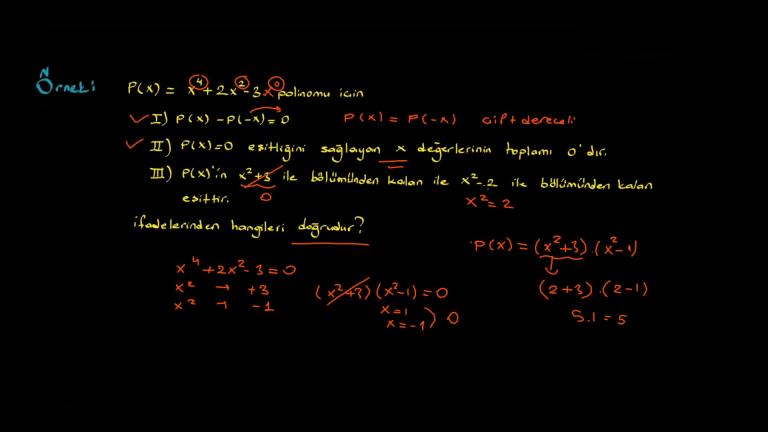 Örnek:
P(x) = x⁴ + 2x² - 3x⁰ polinomu için
I) P(x) - P(-x) = 0
P(x) = P(-x) çift dereceli
II) P(x) = 0 eşitliğini sağlayan x değerlerinin toplamı 0'dır.
III) P(x)'in x²+3 ile bölümünden kalan ile x²-2 ile bölümünden kalan
eşittir.
0
x² = 2
ifadelerinden hangileri doğrudur?
P(x) = (x²+3).(x²-1)
x⁴ + 2x² - 3 = 0
x² → +3
x² → -1
(x²+3)(x²-1) = 0
x = 1
x = -1
0
(2+3).(2-1)
5.1 = 5